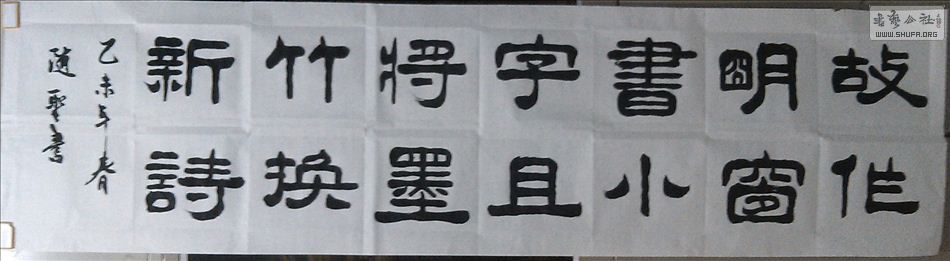 故作
明窗
書小
字且
将墨
竹換
新詩
乙未年春
随聖書
书艺公社
WWW.SHUFA.ORG